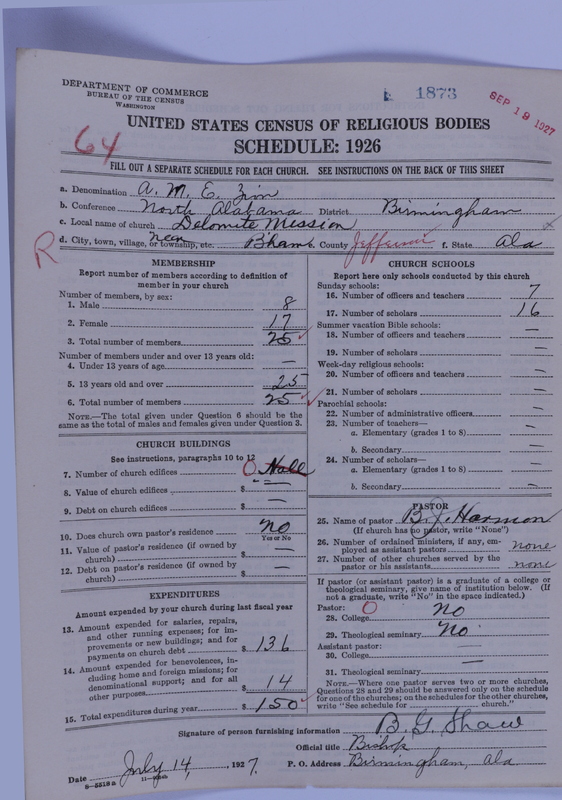 DEPARTMENT OF COMMERCE
BUREAU OF THE CENSUS
WASHINGTON
1873
SEP 19 1927
64
UNITED STATES CENSUS OF RELIGIOUS BODIES
SCHEDULE: 1926
FILL OUT A SEPARATE SCHEDULE FOR EACH CHURCH. SEE INSTRUCTIONS ON THE BACK OF THIS SHEET
a. Denomination A. M. E. Zion
b. Conference North Alabama District Birmingham
c. Local name of church Dolomite Mission
R
d. City, town, village, or township, etc. near B'ham County Jefferson f. State Ala
MEMBERSHIP
Report number of members according to definition of
member in your church
Number of members, by sex:
1. Male 8
2. Female 17
3. Total number of members 25
Number of members under and over 13 years old:
4. Under 13 years of age —
5. 13 years old and over 25
6. Total number of members 25
NOTE.—The total given under Question 6 should be the
same as the total of males and females given under Question 3.
CHURCH BUILDINGS
See instructions, paragraphs 10 to 12
7. Number of church edifices 0 Hall
8. Value of church edifices $ —
9. Debt on church edifices $ —
10. Does church own pastor's residence No
Yes or No
11. Value of pastor's residence (if owned by
church) $ —
12. Debt on pastor's residence (if owned by
church) $ —
EXPENDITURES
Amount expended by your church during last fiscal year
13. Amount expended for salaries, repairs,
and other running expenses; for im-
provements or new buildings; and for
payments on church debt $ 136
14. Amount expended for benevolences, in-
cluding home and foreign missions; for
denominational support; and for all
other purposes $ 14
15. Total expenditures during year $ 150
CHURCH SCHOOLS
Report here only schools conducted by this church
Sunday schools:
16. Number of officers and teachers 7
17. Number of scholars 16
Summer vacation Bible schools:
18. Number of officers and teachers —
19. Number of scholars —
Week-day religious schools:
20. Number of officers and teachers —
21. Number of scholars —
Parochial schools:
22. Number of administrative officers —
23. Number of teachers—
a. Elementary (grades 1 to 8) —
b. Secondary —
24. Number of scholars—
a. Elementary (grades 1 to 8) —
b. Secondary —
PASTOR
25. Name of pastor B. J. Harmon
(If church has no pastor, write "None")
26. Number of ordained ministers, if any, em-
ployed as assistant pastors none
27. Number of other churches served by the
pastor or his assistants none
If pastor (or assistant pastor) is a graduate of a college or
theological seminary, give name of institution below. (If
not a graduate, write "No" in the space indicated.)
Pastor: 0
28. College No
29. Theological seminary No
Assistant pastor:
30. College —
31. Theological seminary
NOTE.—Where one pastor serves two or more churches,
Questions 28 and 29 should be answered only on the schedule
for one of the churches; on the schedules for the other churches,
write "See schedule for church."
Signature of person furnishing information B. G. Shaw
Official title Bishop
Date July 14, 1927. P. O. Address Birmingham, Ala
8—5518 a